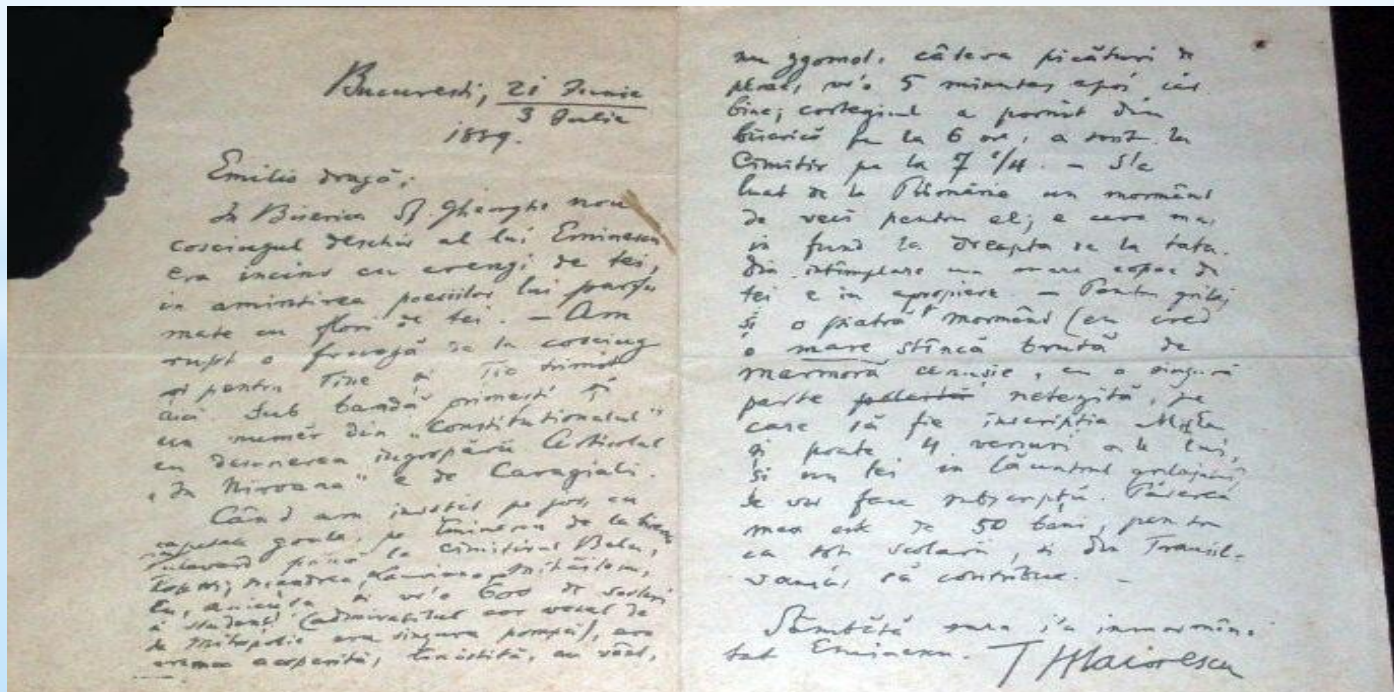 Bucuresti, 21 Iunie
3 Iulie
1889.
Emilio dragă;
In Biserica Sf. Gheorghe nou
cosciugul deschis al lui Eminescu
era incins cu crengi de tei,
in amintirea poesiilor lui parfu
mate cu flori de tei. — Am
rupt o frunză de la cosciug
și pentru Tine și Tie trimit
aici sub bandă primesti și
un numĕr din „Constitutionalul"
cu descrierea ingropării Articolul
„In Nirvana" e de Caragiali.
Când am insotit pe jos, cu
capetele goale, pe Eminescu de la
bulevard până la cimitirul Belu,
600 de scolari
și studenti (admirabilul cor vocal de
la Mitropolie era singura pompă), era
vremea acoperită, linistită, cu vânt,
nu sgomot. câteva picături de
ploaie, vr'o 5 minute, apoi iar
bine; cortegiul a pornit din
biserică pe la 6 ore, a sosit la
Cimitir pe la 7 1/4. — S'a
luat de la Primărie un mormânt
de veci pentru el; e ceva mai
in fund la dreapta de la tata.
din intimplare un mare copac de
tei e in apropiere. — Pentru grilaj
și o piatră mormânt (eu cred
o mare stîncă brută de
marmoră cenusie, cu o singură
parte netezită, pe
care să fie inscriptia
și poate 4 versuri a le lui,
și un tei in lăuntrul grilajului,
se va face subscriptii. Părerea
mea este de 50 bani, pentru
ca toti scolarii, și din Transil-
vania, să contribue. —
Sâmbătă sara s'a inmormîn-
tat Eminescu. T Maiorescu